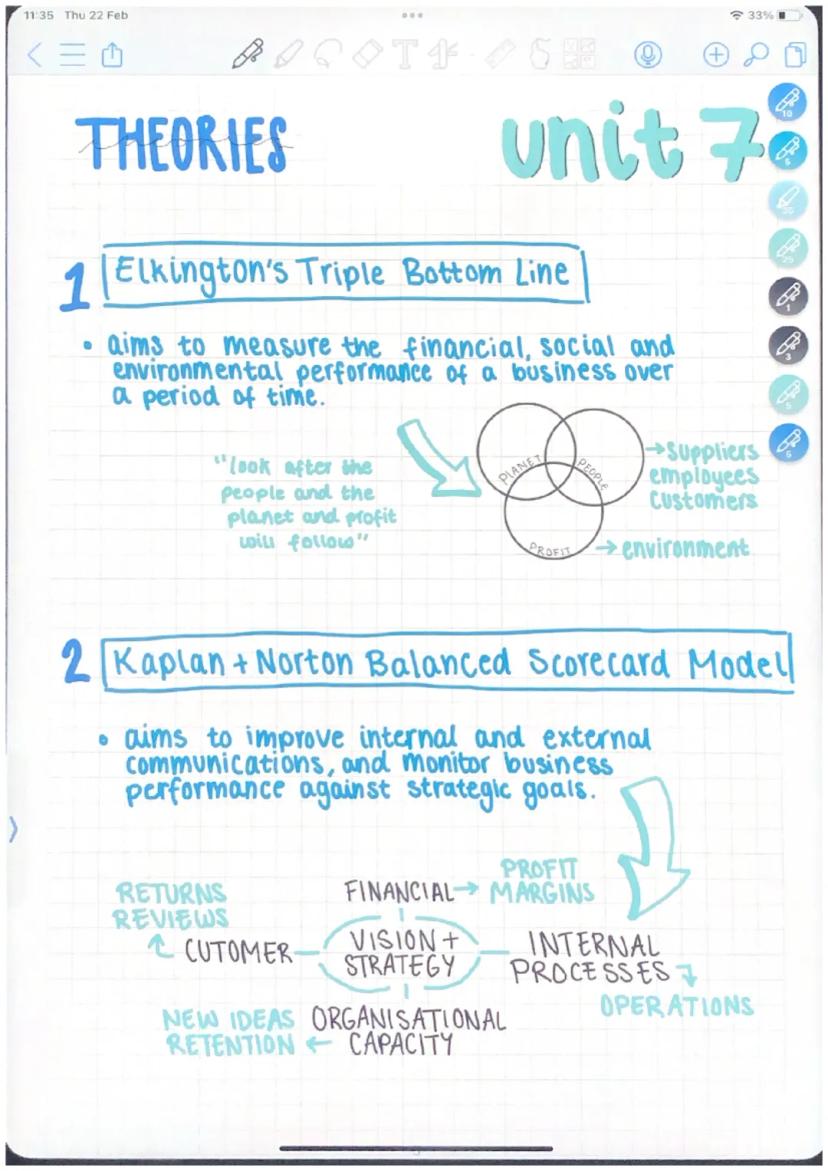 11:35 Thu 22 Feb
33%
THEORIES
unit 7
10
5
25
1
3
5
6
1 Elkington's Triple Bottom Line
• aims to measure the financial, social and
environmental performance of a business over
a period of time.
"look after the
people and the
planet and profit
will follow"
PLANET
PEOPLE
PROFIT
→ Suppliers
employees
customers
→ environment
2 Kaplan + Norton Balanced Scorecard Model
• aims to improve internal and external
communications, and monitor business
performance against strategic goals.
FINANCIAL → PROFIT
MARGINS
RETURNS
REVIEWS
CUTOMER
VISION +
STRATEGY
INTERNAL
PROCESSES
OPERATIONS
NEW IDEAS
RETENTION ←
ORGANISATIONAL
CAPACITY